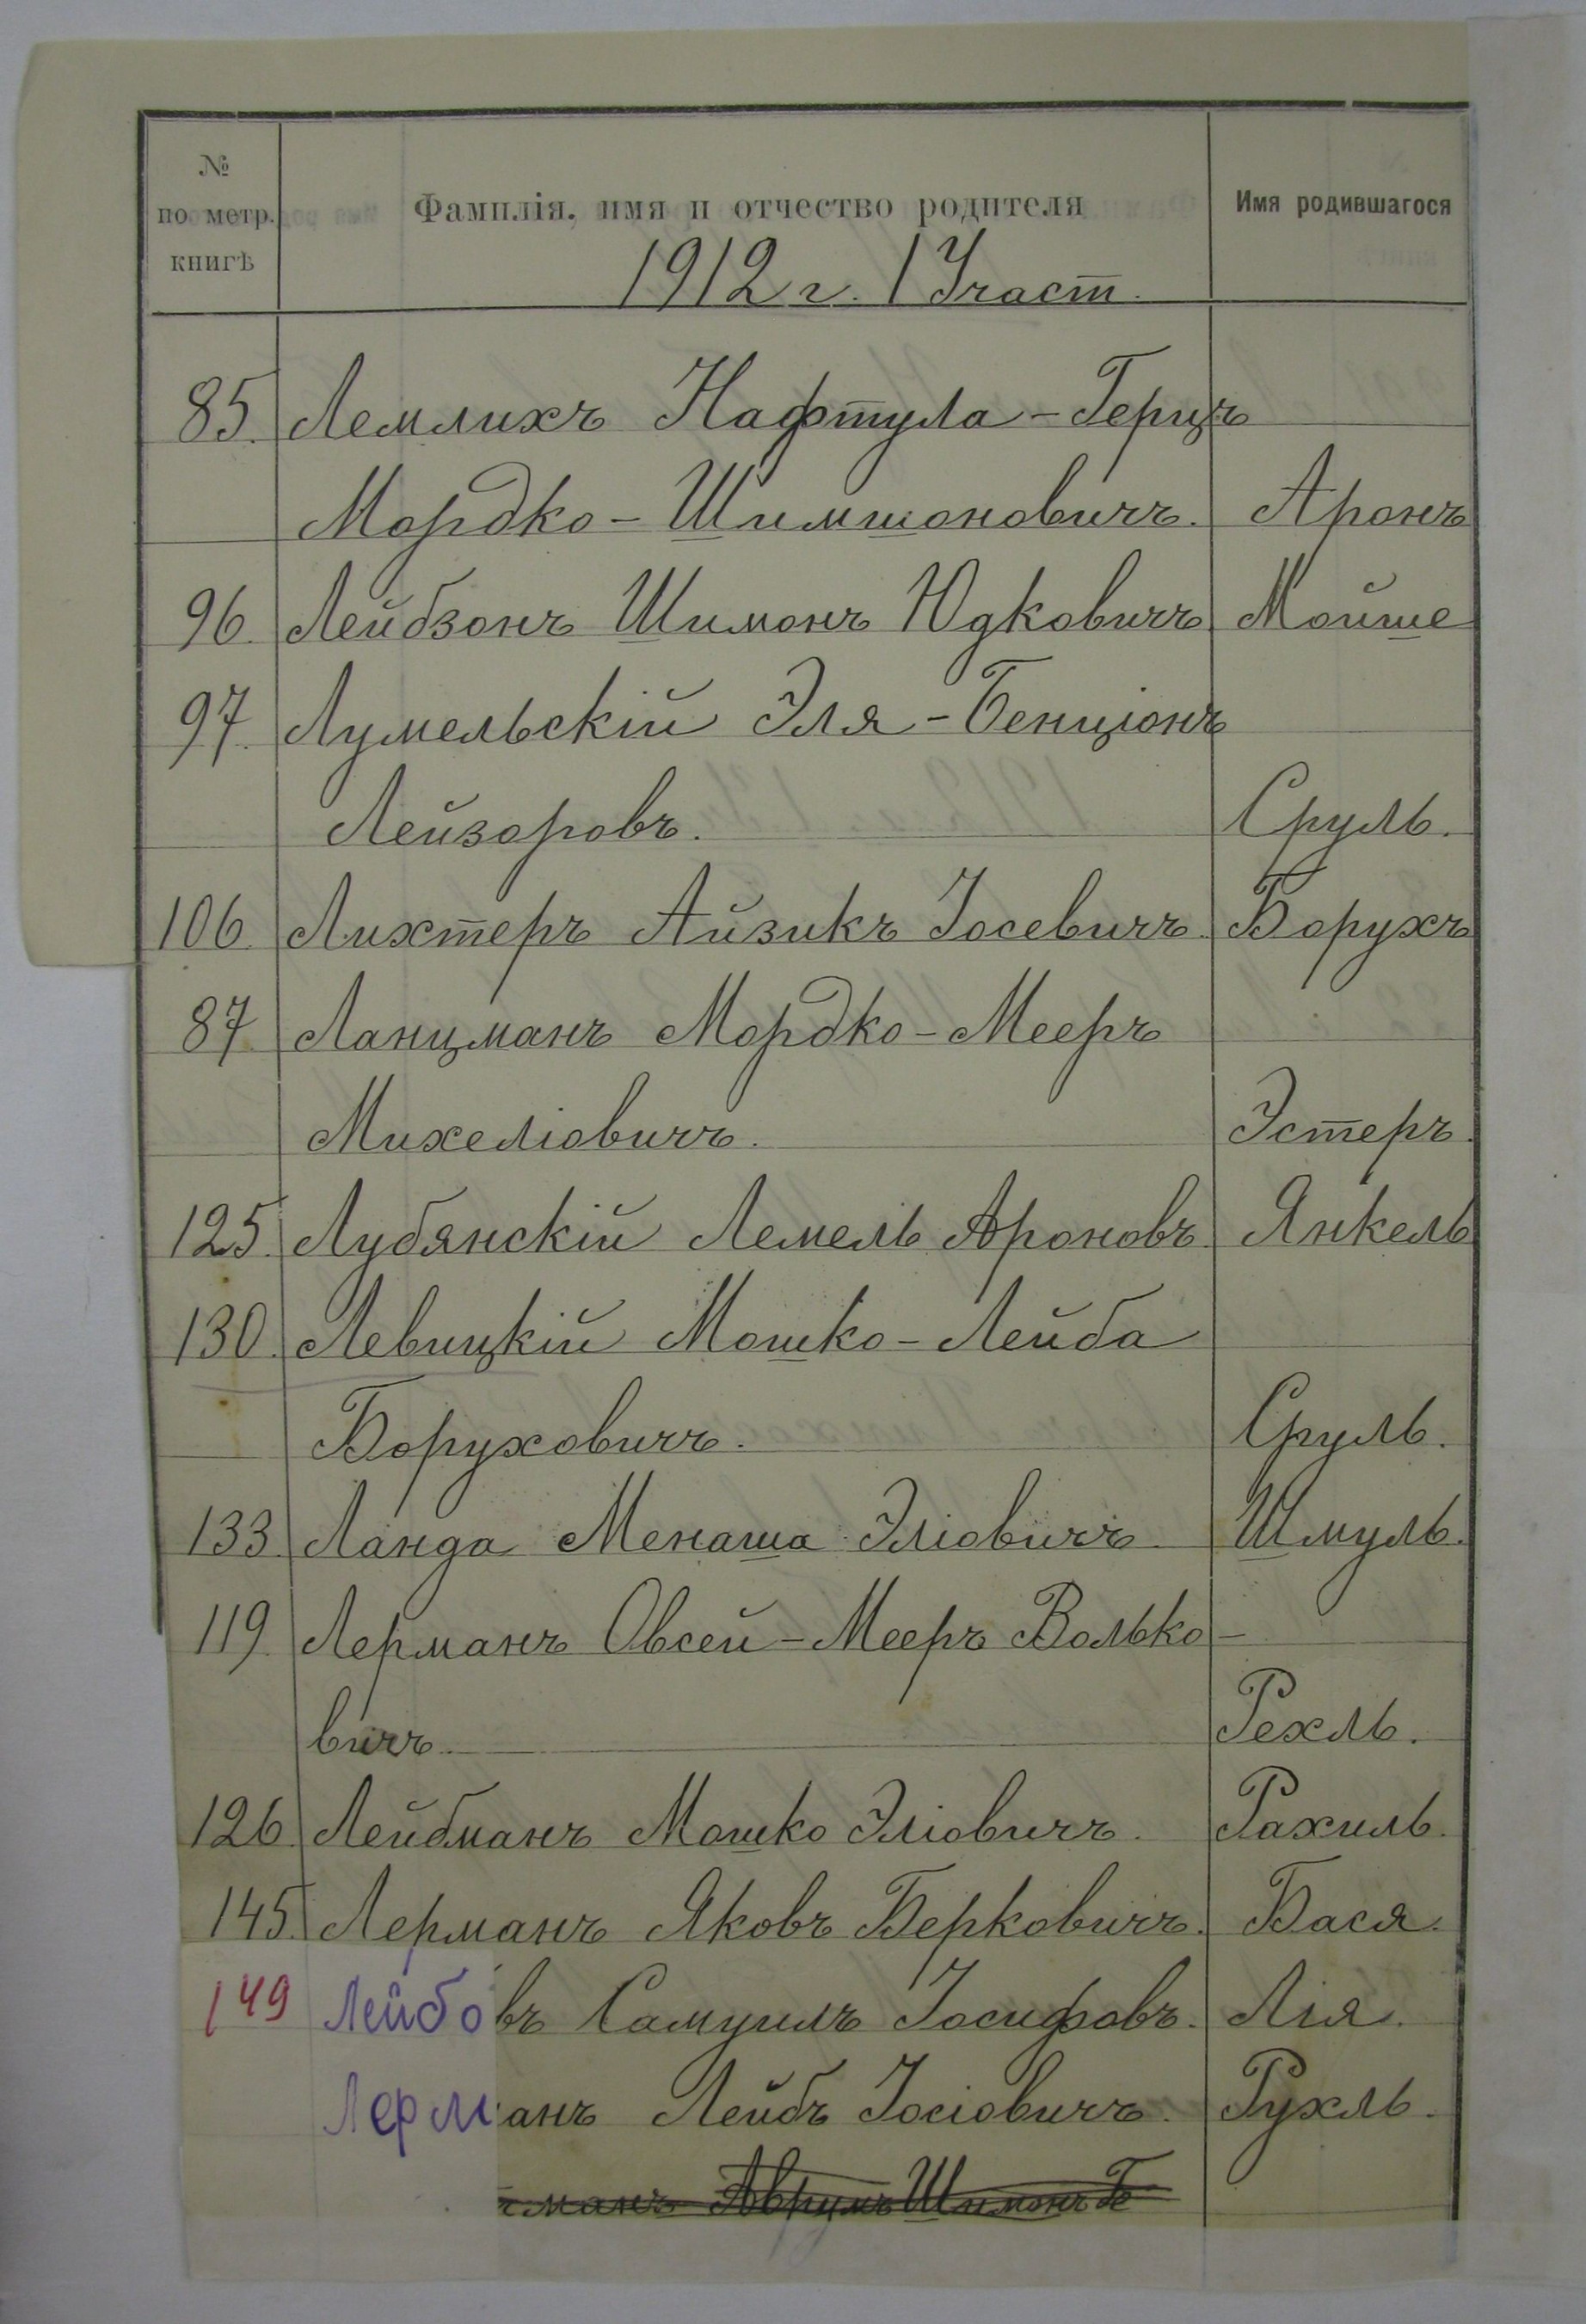 № по метр. книгѣ
Фамилія, имя и отчество родителя
Имя родившагося
1912 г. 1 Участ.
85. Лемлихъ Нафтула-Герцъ
Мордко-Шимшоновичъ. Аронъ
96. Лейбзонъ Шимонъ Юдковичъ Мойше
97. Лумельскій Эля-Бенціонъ
Лейзоровъ. Сруль.
106. Лихтеръ Айзикъ Іосевичъ. Борухъ
87 Ланцманъ Мордко-Мееръ
Михеліовичъ. Эстеръ.
125. Лубянскій Лемель Ароновъ. Янкель
130. Левицкій Мошко-Лейба
Боруховичъ. Сруль.
133. Ланда Менаша Эліовичъ. Шмуль.
119. Лерманъ Овсей-Мееръ Волько-
вичъ. Рехль.
126. Лейбманъ Мошко Эліовичъ. Рахиль.
145. Лерманъ Яковъ Берковичъ. Бася.
149 Лейбовъ Самуилъ Іосифовъ. Лія.
Лерманъ Лейбъ Іосіовичъ. Рухль.
манъ Аврумъ Шимонъ Бе